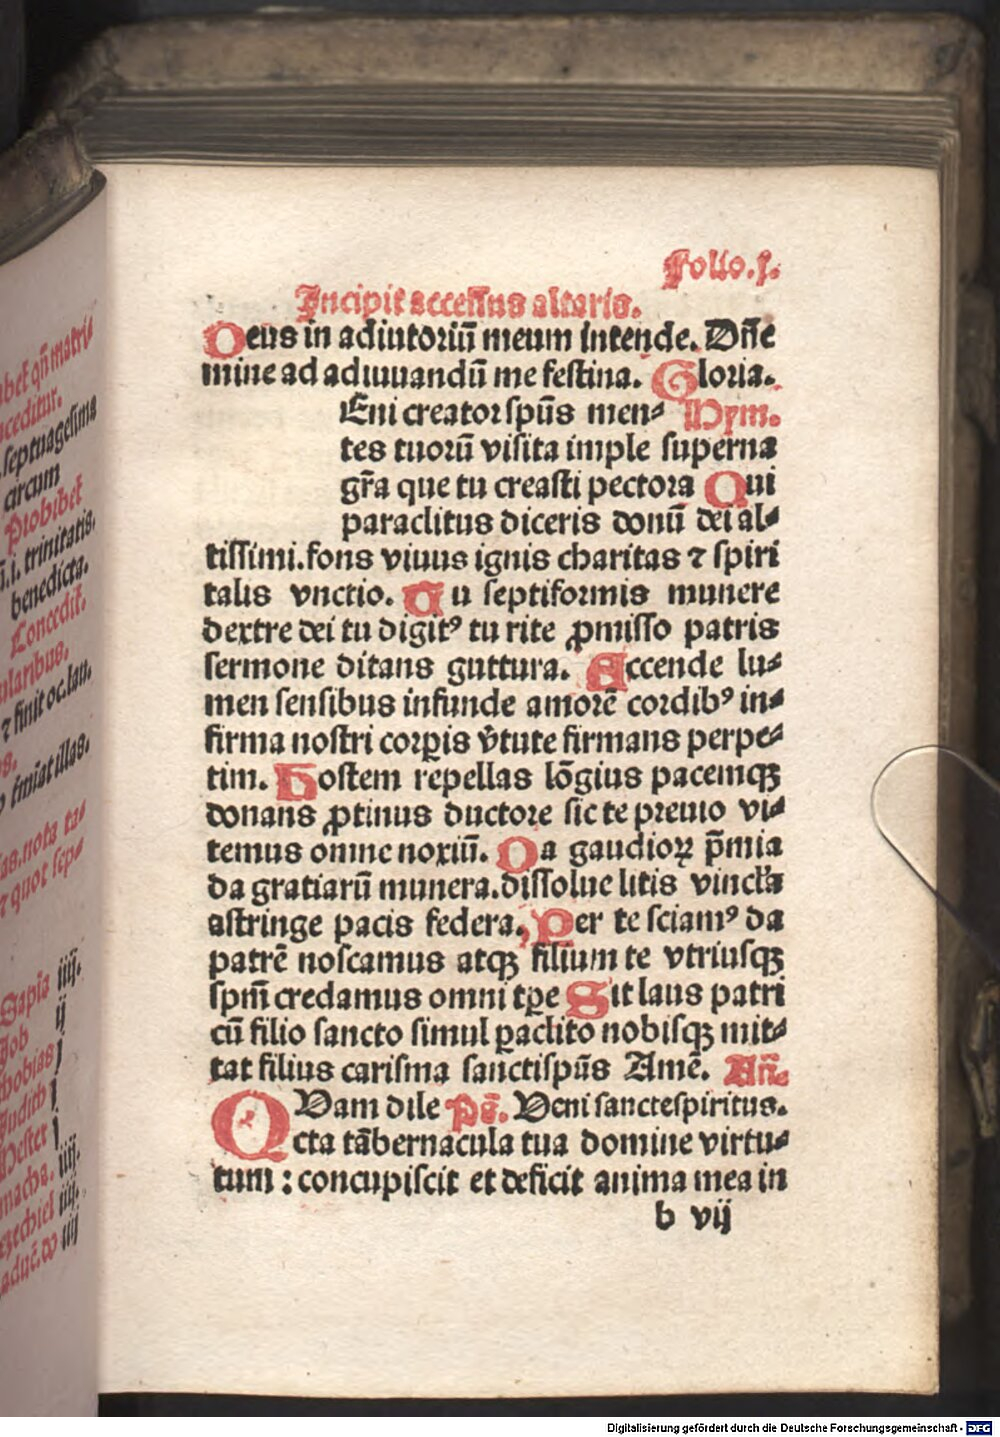 Folio.j.
Incipit accessus altaris.
Deus in adiutoriū meum intende. Dn̄e
mine ad adiuuandū me festina. Gloria.
Eni creator spūs men⸗ Hym.
tes tuorū visita imple superna
gr̄a que tu creasti pectora Qui
paraclitus diceris donū dei al⸗
tissimi.fons viuus ignis charitas ⁊ spiri
talis vnctio. Tu septiformis munere
dextre dei tu digitꝰ tu rite ꝓmisso patris
sermone ditans guttura. Accende lu⸗
men sensibus infunde amorē cordibꝰ in⸗
firma nostri corꝑis v̄tute firmans perpe⸗
tim. Hostem repellas lōgius pacemqꝫ
donans ꝓtinus ductore sic te preuio vi⸗
temus omne noxiū. Da gaudioꝝ p̄mia
da gratiarū munera.dissolue litis vincl̄a
astringe pacis federa. Per te sciamꝰ da
patrē noscamus atqꝫ filium te vtriusqꝫ
spm̄ credamus omni tꝑe Sit laus patri
cū filio sancto simul ꝑaclito nobisqꝫ mit⸗
tat filius carisma sancti spūs Amē. An̄.
QVam dile Ps̄. Veni sancte spiritus.
cta tābernacula tua domine virtu⸗
tum : concupiscit et deficit anima mea in
b vij
abet qn̄ matris
ceditur.
septuagesima
circum
Prohibet
ū.i. trinitatis.
benedicta.
Concedit.
ularibus.
⁊ finit oc.lau.
s.
tm̄iat illas.
as.nota ta⸗
⁊ quot sep⸗
Sapīa iiij.
Job ij
Thobias j
Judith j
Hester j
macha. iiij.
ezechiel iij.
aduē.do iiij
Digitalisierung gefördert durch die Deutsche Forschungsgemeinschaft - DFG